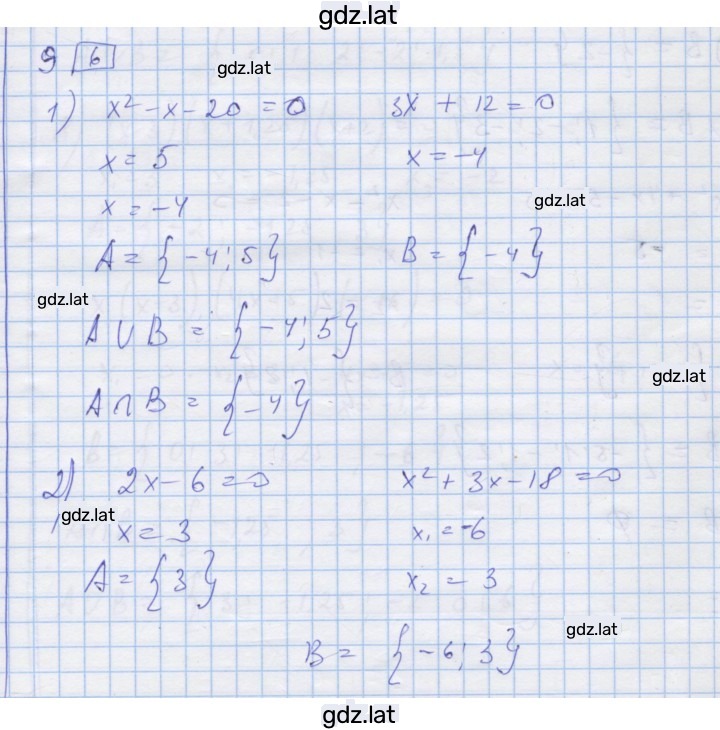 gdz.lat
9 6
gdz.lat
1) x² - x - 20 = 0 3x + 12 = 0
x = 5 x = -4
x = -4
gdz.lat
A = {-4; 5} B = {-4}
gdz.lat
A ∪ B = {-4; 5}
gdz.lat
A ∩ B = {-4}
2) 2x - 6 = 0 x² + 3x - 18 = 0
gdz.lat
x = 3 x₁ = -6
A = {3} x₂ = 3
gdz.lat
B = {-6; 3}
gdz.lat